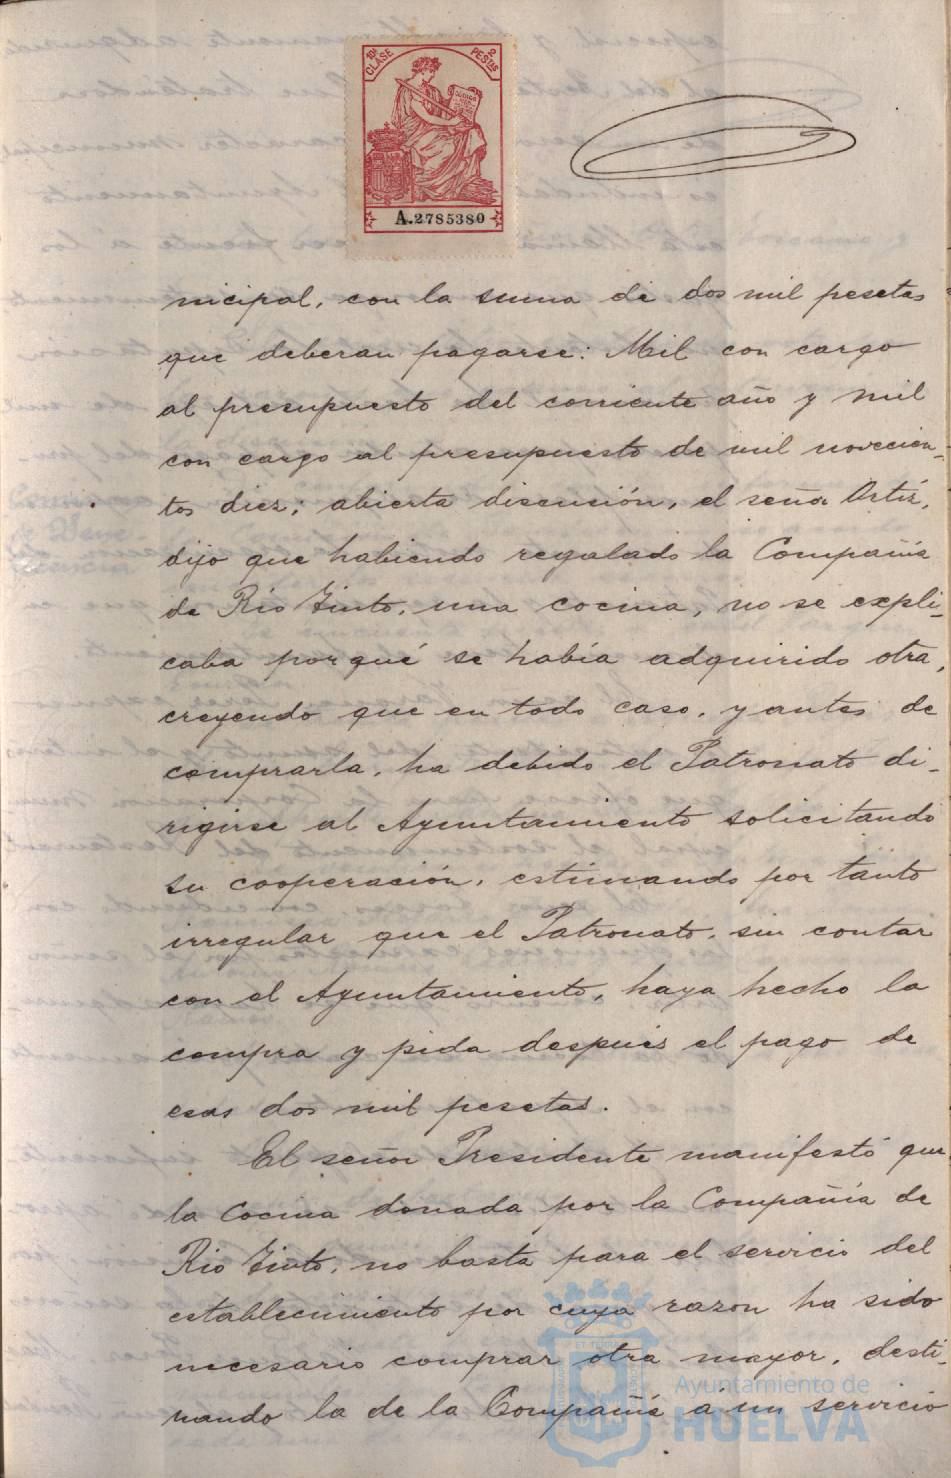 10ª CLASE 2 PESTAS
A.2785380
nicipal, con la suma de dos mil pesetas
que deberan pagarse: Mil con cargo
al presupuesto del corriente año y mil
con cargo al presupuesto de mil novecien-
tos diez; abierta discusión, el señor Ortiz,
dijo que habiendo regalado la Compañia
de Rio Tinto, una cocina, no se expli-
caba porqué se había adquirido otra,
creyendo que en todo caso, y antes de
comprarla, ha debido el Patronato di-
rigirse al Ayuntamiento solicitando
su cooperación, estimando por tanto
irregular que el Patronato, sin contar
con el Ayuntamiento, haya hecho la
compra y pida después el pago de
esas dos mil pesetas.
El señor Presidente manifestó que
la cocina donada por la Compañía de
Rio Tinto, no basta para el servicio del
establecimiento por cuya razon ha sido
necesario comprar otra mayor, desti-
nando la de la Compañia á un servicio
Ayuntamiento de
HUELVA